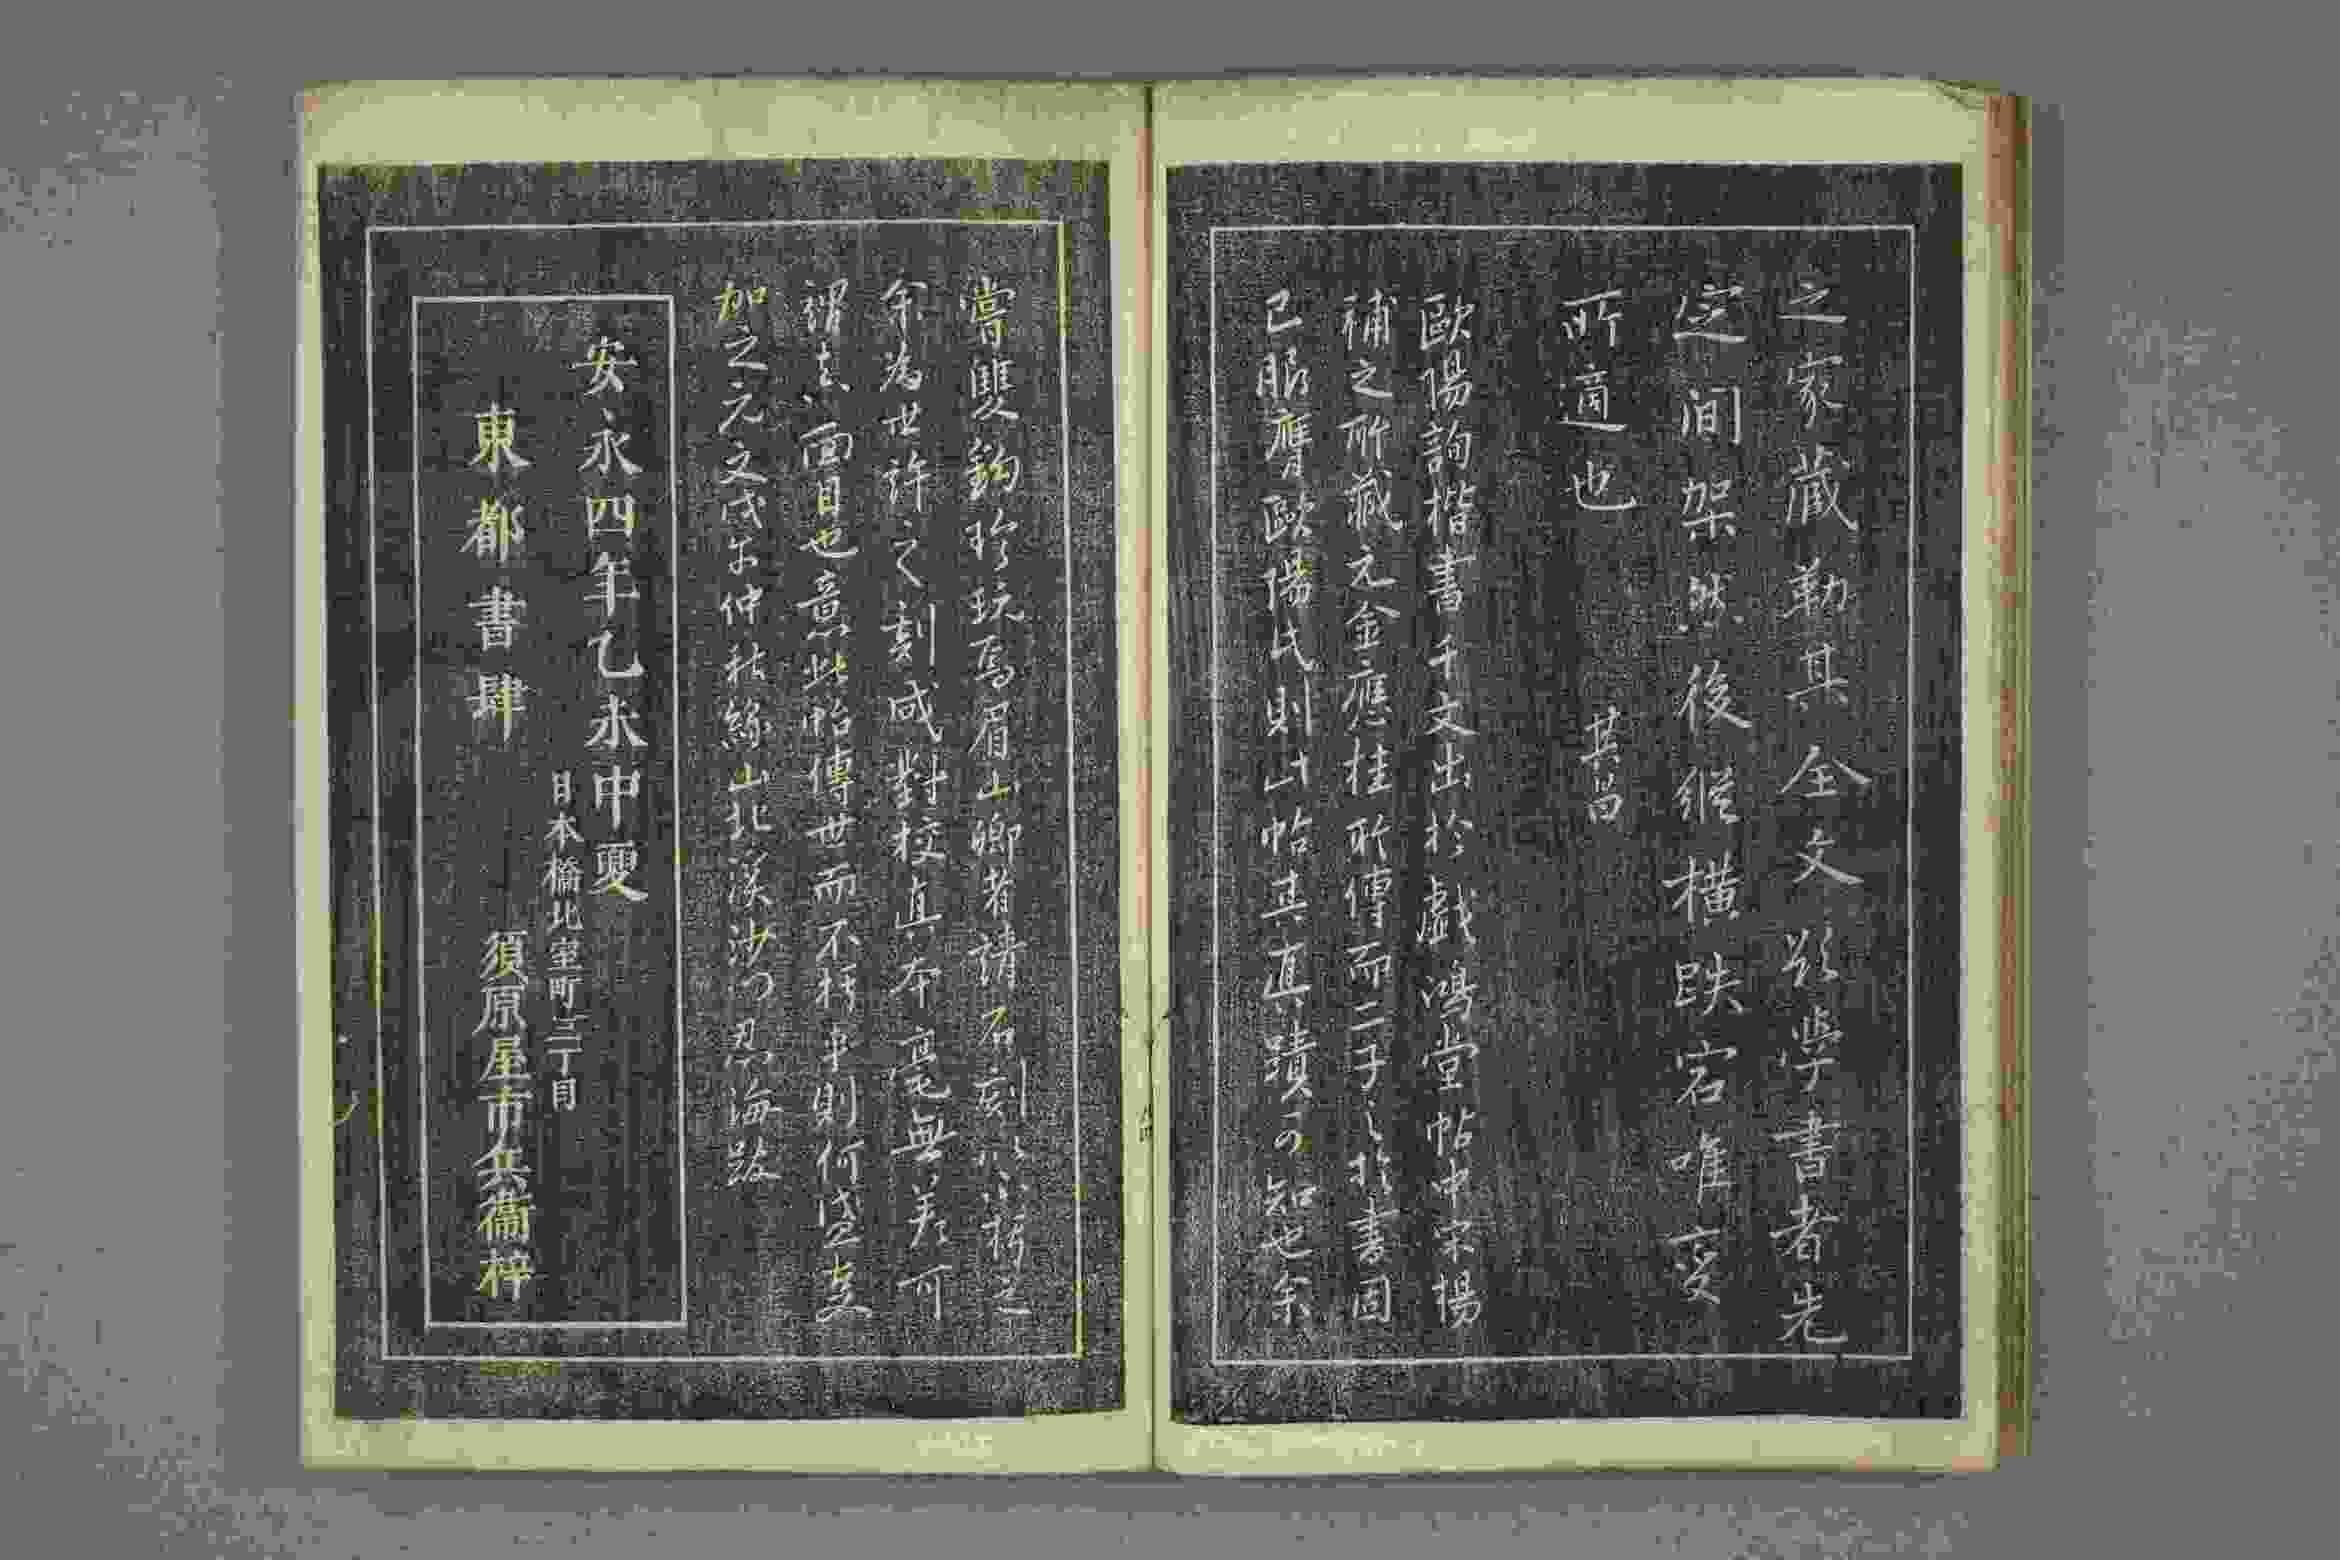 之家藏勒其全文欲学書者先
定间架然後縱横跌宕唯变
所適也
其昌
歐陽詢楷書千文出於戯鴻堂帖中宋楊
補之所藏元金應桂所傳而二子之於書固
已服膺歐陽氏則此帖其真蹟可知也余
嘗雙鈎珍玩焉眉山卿者請石刻以搨之
余為世許之刻成對校真本毫無差可
謂真面目也意此帖傳世而不搨本則何盛事
加之元文戊午仲秋絲山北溪沙門忍海跋
安永四年乙未中夏
日本橋北室町三丁目
東都書肆 須原屋市兵衞梓